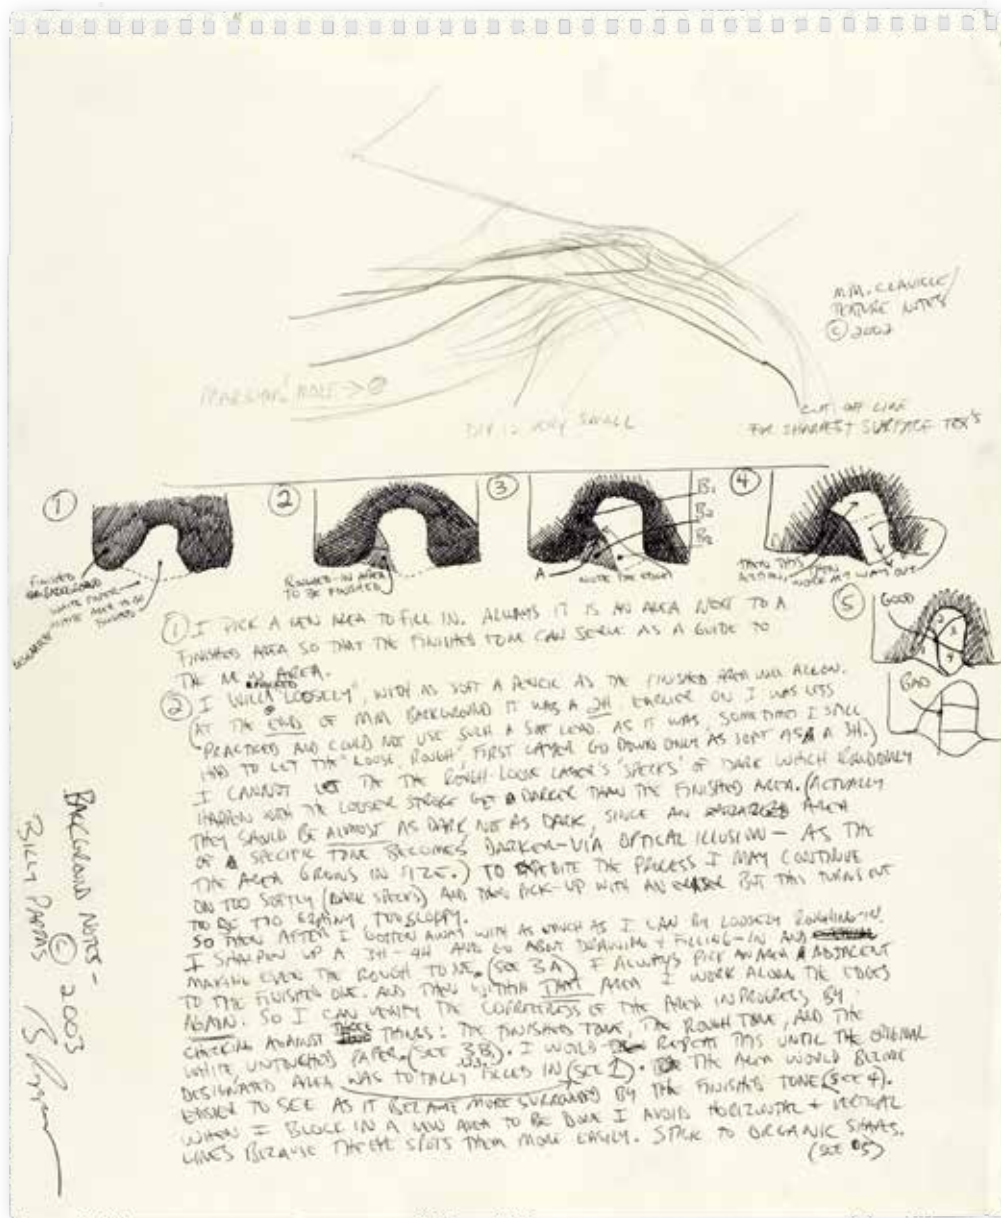 M.M. CLAVICLE/
TEXTURE NOTES
© 2002
MARILYN'S MOLE →
DIP IS VERY SMALL
CUT OFF LINE
FOR SHARPEST SURFACE TEX'S
1
2
3
4
B1
B2
B2
FINISHED
BACKGROUND
WHITE PAPER
AREA TO BE
FINISHED
DESIGNATED
ROUGHED-IN AREA
TO BE FINISHED
A
NOTE THE EDGES
THEN THIS THEN
WORK MY WAY OUT
5
GOOD
BAD
1 I PICK A NEW AREA TO FILL IN. ALWAYS IT IS AN AREA NEXT TO A
FINISHED AREA SO THAT THE FINISHED TONE CAN SERVE AS A GUIDE TO
THE NEW AREA.
2 I WILL "LOOSELY", WITH AS SOFT A PENCIL AS THE FINISHED AREA WILL ALLOW.
AT THE END OF MM BACKGROUND IT WAS A 2H. EARLIER ON I WAS LESS
PRACTICED AND COULD NOT USE SUCH A SOFT LEAD. AS IT WAS, SOMETIMES I STILL
HAD TO LET THE "LOOSE, ROUGH" FIRST LAYER GO DOWN ONLY AS SOFT AS A 3H.)
I CANNOT LET THE ROUGH-LOOSE LAYER'S 'SPECKS' OF DARK WHICH RANDOMLY
HAPPEN WITH THE LOOSER STROKE GET DARKER THAN THE FINISHED AREA. (ACTUALLY
THEY SHOULD BE ALMOST AS DARK NOT AS DARK, SINCE AN AREA
OF A SPECIFIC TONE BECOMES DARKER-VIA OPTICAL ILLUSION - AS THE
THE AREA GROWS IN SIZE.) TO EXPEDITE THE PROCESS I MAY CONTINUE
ON TOO SOFTLY (DARK SPECKS) AND THEN PICK-UP WITH AN ERASER BUT THIS TURNS OUT
TO BE TOO GRAINY TOO SLOPPY.
SO THEN AFTER I GOTTEN AWAY WITH AS MUCH AS I CAN BY LOOSELY ROUGHING-IN
I SHARPEN UP A 3H-4H AND GO ABOUT DRAWING + FILLING-IN AND
MAKING EVEN THE ROUGH TONE. (SEE 3A) I ALWAYS PICK AN AREA ADJACENT
TO THE FINISHED ONE. AND THEN WITHIN THAT AREA I WORK ALONG THE EDGES
AGAIN. SO I CAN VERIFY THE CORRECTNESS OF THE AREA IN PROGRESS BY
CHECKING AGAINST THREE THINGS: THE FINISHED TONE, THE ROUGH TONE, AND THE
WHITE UNTOUCHED PAPER. (SEE 3B). I WOULD REPEAT THIS UNTIL THE ORIGINAL
DESIGNATED AREA WAS TOTALLY FILLED IN (SEE 1). THE AREA WOULD BECOME
EASIER TO SEE AS IT BECAME MORE SURROUNDED BY THE FINISHED TONE (SEE 4).
WHEN I BLOCK IN A NEW AREA TO BE DONE I AVOID HORIZONTAL + VERTICAL
LINES BECAUSE THE EYE SPOTS THEM MORE EASILY. STICK TO ORGANIC SHAPES.
(SEE 5)
BACKGROUND NOTES -
© 2003
BILLY PAPPAS